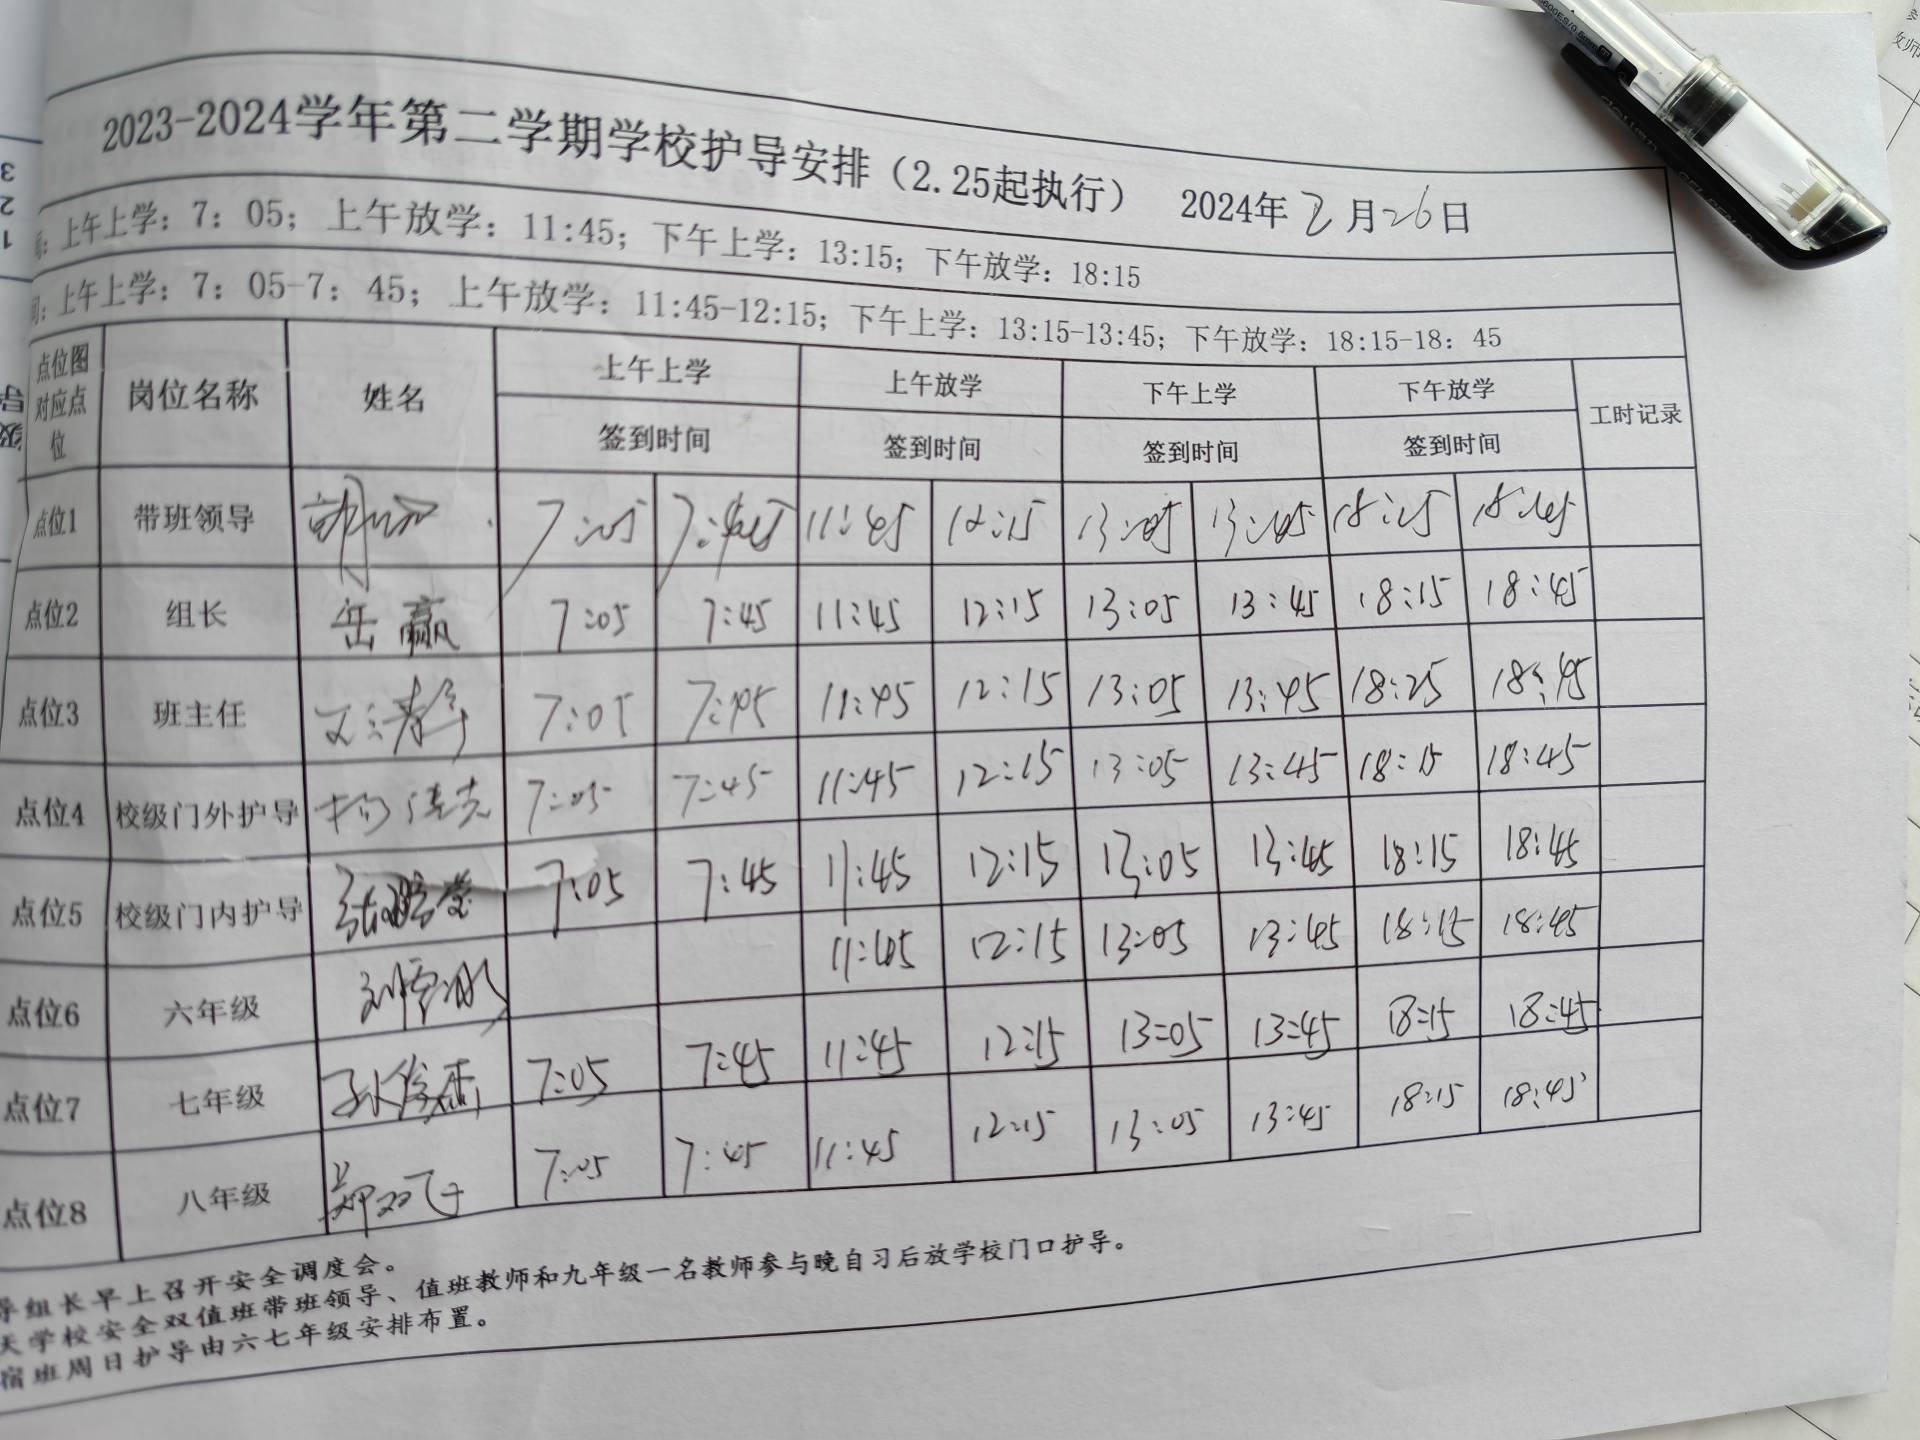 2023-2024学年第二学期学校护导安排（2.25起执行） 2024年2月26日
：上午上学：7：05；上午放学：11:45；下午上学：13:15；下午放学：18:15
间：上午上学：7：05-7：45；上午放学：11:45-12:15；下午上学：13:15-13:45；下午放学：18:15-18：45
点位图对应点位 岗位名称 姓名 上午上学 上午放学 下午上学 下午放学 工时记录
签到时间 签到时间 签到时间 签到时间
点位1 带班领导 7:05 7:45 11:45 12:15 13:05 13:45 18:15 18:45
点位2 组长 岳赢 7:05 7:45 11:45 12:15 13:05 13:45 18:15 18:45
点位3 班主任 7:05 7:45 11:45 12:15 13:05 13:45 18:25 18:45
点位4 校级门外护导 7:05 7:45 11:45 12:15 13:05 13:45 18:15 18:45
点位5 校级门内护导 7:05 7:45 11:45 12:15 13:05 13:45 18:15 18:45
点位6 六年级 11:45 12:15 13:05 13:45 18:15 18:45
点位7 七年级 7:05 7:45 11:45 12:15 13:05 13:45 18:15 18:45
点位8 八年级 7:05 7:45 11:45 12:15 13:05 13:45 18:15 18:45
导组长早上召开安全调度会。
天学校安全双值班带班领导、值班教师和九年级一名教师参与晚自习后放学校门口护导。
宿班周日护导由六七年级安排布置。